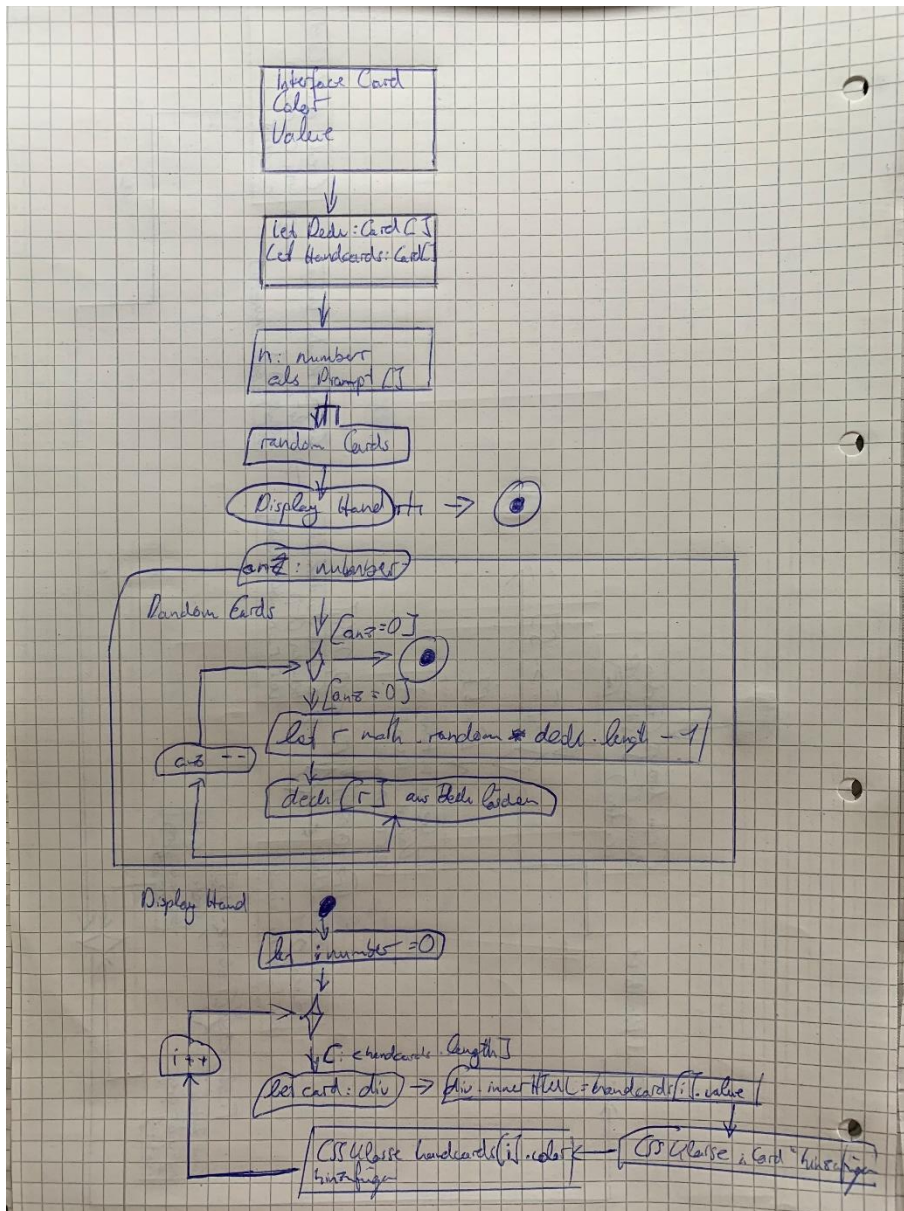 Interface Card
Color
Value
let Deck: Card[]
let Handcards: Card[]
n: number
als Prompt []
random Cards
Display Hand
anz: number
Random Cards
[anz=0]
[anz=0]
let r math.random * deck.length - 1
anz --
deck [r] aus Deck
Display Hand
let i number = 0
i++
[i < handcards.length]
let card: div
div.innerHTML = handcards[i].value
CSS Klasse handcards[i].color
hinzufügen
CSS Klasse „Card" hinzufügen